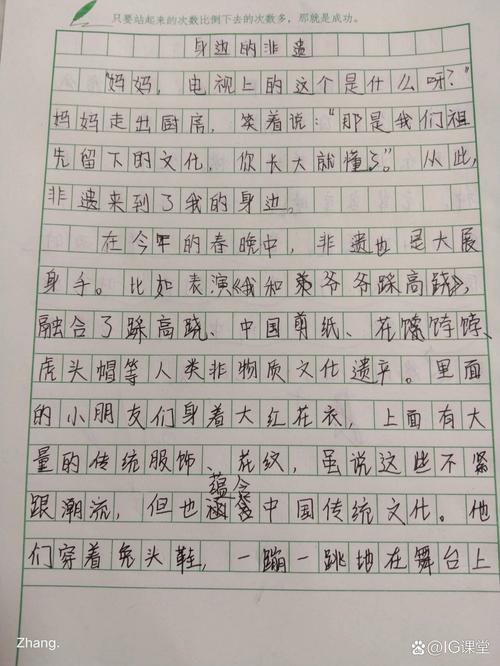 只要站起来的次数比倒下去的次数多，那就是成功。
身边的非遗
“妈妈，电视上的这个是什么呀？”
妈妈走出厨房，笑着说：“那是我们祖
先留下的文化，你长大就懂了。”从此，
非遗来到了我的身边。
在今年的春晚中，非遗也是大展
身手。比如表演《我和弟爷爷踩高跷》，
融合了踩高跷、中国剪纸、花馍饽饽、
虎头帽等人类非物质文化遗产。里面
的小朋友们身着大红花衣，上面有大
量的传统服饰、花纹，虽说这些不紧
蕴含
跟潮流，但也中国传统文化。他
们穿着兔头鞋，一蹦一跳地在舞台上
Zhang.
@IG课堂